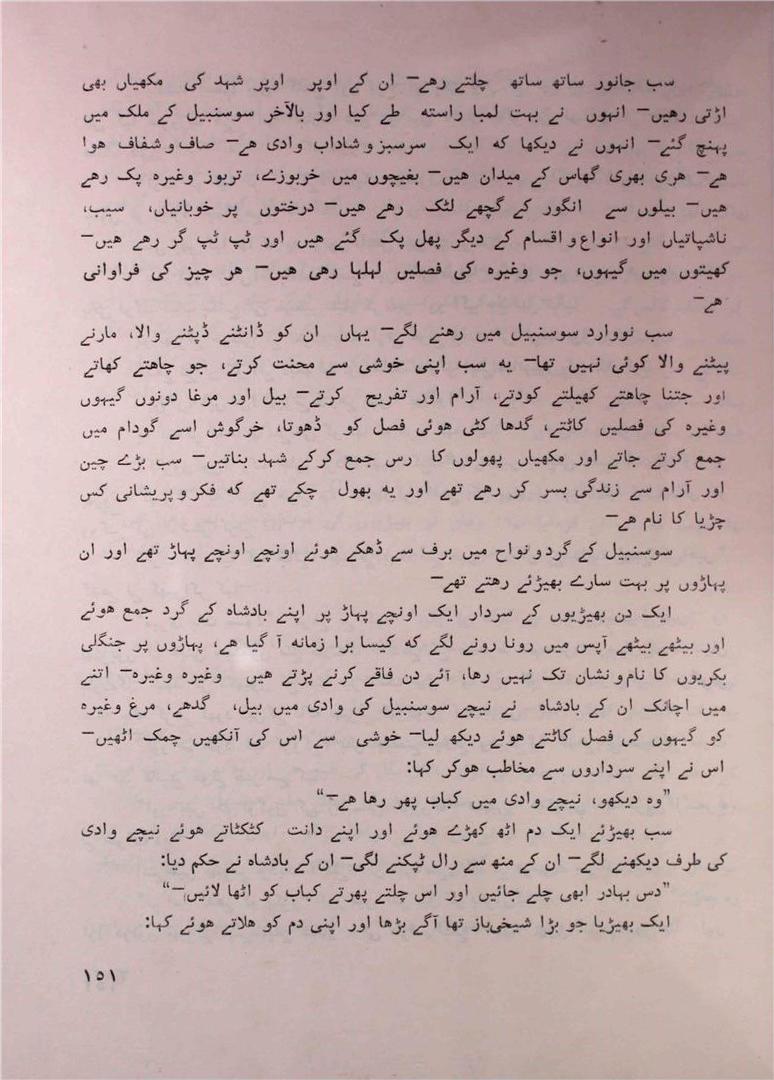 سب جانور ساتھ ساتھ چلتے رھے— ان کے اوپر اوپر شہد کی مکھیاں بھی
اڑتی رھیں— انہوں نے بہت لمبا راستہ طے کیا اور بالآخر سوسنبیل کے ملک میں
پہنچ گئے— انہوں نے دیکھا کہ ایک سرسبز و شاداب وادی ھے— صاف و شفاف ھوا
ھے— ھری بھری گھاس کے میدان ھیں— بغیچوں میں خربوزے، تربوز وغیرہ پک رھے
ھیں— بیلوں سے انگور کے گچھے لٹک رھے ھیں— درختوں پر خوبانیاں، سیب،
ناشپاتیاں اور انواع و اقسام کے دیگر پھل پک گئے ھیں اور ٹپ ٹپ گر رھے ھیں—
کھیتوں میں گیہوں، جو وغیرہ کی فصلیں لہلہا رھی ھیں— ھر چیز کی فراوانی
ھے—
سب نووارد سوسنبیل میں رھنے لگے— یہاں ان کو ڈانٹنے ڈپٹنے والا، مارنے
پیٹنے والا کوئی نہیں تھا— یہ سب اپنی خوشی سے محنت کرتے، جو چاھتے کھاتے
اور جتنا چاھتے کھیلتے کودتے، آرام اور تفریح کرتے— بیل اور مرغا دونوں گیہوں
وغیرہ کی فصلیں کاٹتے، گدھا کٹی ھوئی فصل کو ڈھوتا، خرگوش اسے گودام میں
جمع کرتے جاتے اور مکھیاں پھولوں کا رس جمع کرکے شہد بناتیں— سب بڑے چین
اور آرام سے زندگی بسر کر رھے تھے اور یہ بھول چکے تھے کہ فکر و پریشانی کس
چڑیا کا نام ھے—
سوسنبیل کے گرد و نواح میں برف سے ڈھکے ھوئے اونچے اونچے پہاڑ تھے اور ان
پہاڑوں پر بہت سارے بھیڑئے رھتے تھے—
ایک دن بھیڑیوں کے سردار ایک اونچے پہاڑ پر اپنے بادشاہ کے گرد جمع ھوئے
اور بیٹھے بیٹھے آپس میں رونا رونے لگے کہ کیسا برا زمانہ آ گیا ھے، پہاڑوں پر جنگلی
بکریوں کا نام و نشان تک نہیں رھا، آئے دن فاقے کرنے پڑتے ھیں وغیرہ وغیرہ— اتنے
میں اچانک ان کے بادشاہ نے نیچے سوسنبیل کی وادی میں بیل، گدھے، مرغ وغیرہ
کو گیہوں کی فصل کاٹتے ھوئے دیکھ لیا— خوشی سے اس کی آنکھیں چمک اٹھیں—
اس نے اپنے سرداروں سے مخاطب ھوکر کہا:
”وہ دیکھو، نیچے وادی میں کباب پھر رھا ھے—“
سب بھیڑئے ایک دم اٹھ کھڑے ھوئے اور اپنے دانت کٹکٹاتے ھوئے نیچے وادی
کی طرف دیکھنے لگے— ان کے منھ سے رال ٹپکنے لگی— ان کے بادشاہ نے حکم دیا:
”دس بہادر ابھی چلے جائیں اور اس چلتے پھرتے کباب کو اٹھا لائیں—“
ایک بھیڑیا جو بڑا شیخی‌باز تھا آگے بڑھا اور اپنی دم کو ھلاتے ھوئے کہا:
۱۵۱